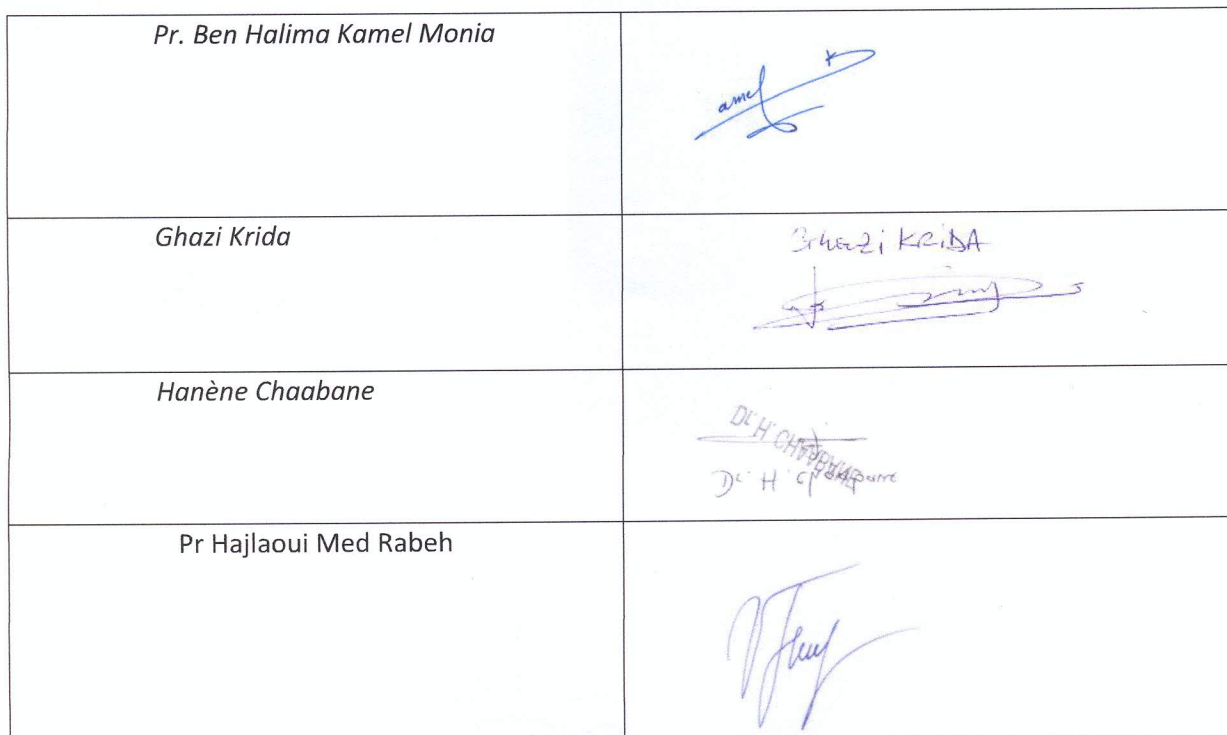 Pr. Ben Halima Kamel Monia
amel K
Ghazi Krida
Ghazi KRiDA
Hanène Chaabane
Dr. H. CHAABANE
Dr. H. Chaabane
Pr Hajlaoui Med Rabeh